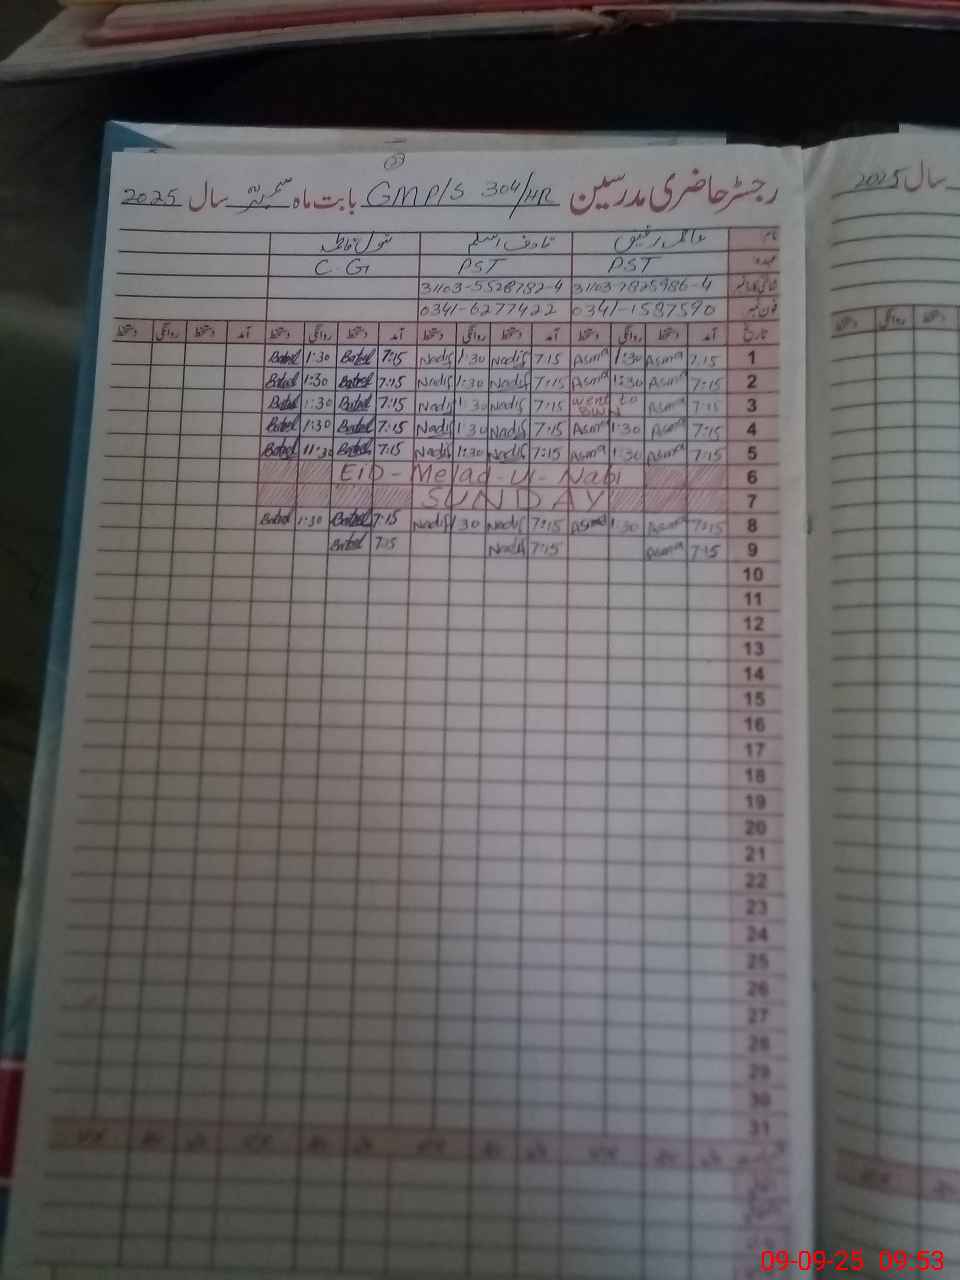 03
رجسٹر حاضری مدرسین GMP/S 304/HR بابت ماہ ستمبر سال 2025
سال 2025
نام
عہدہ PST PST C.G
شناختی کارڈ نمبر 31103-7825986-4 31103-5528782-4
فون نمبر 0341-1587590 0341-6277422
تاریخ آمد دستخط روانگی دستخط آمد دستخط روانگی دستخط آمد دستخط روانگی دستخط آمد دستخط روانگی دستخط
دستخط روانگی دستخط
1 7:15 Asma 1:30 Asma 7:15 Nadif 1:30 Nadif 7:15 Batol 1:30 Batol
2 7:15 Asma 1:30 Asma 7:15 Nadif 1:30 Nadif 7:15 Batol 1:30 Batol
3 7:15 Asma went to BWN 7:15 Nadif 1:30 Nadif 7:15 Batol 1:30 Batol
4 7:15 Asma 1:30 Asma 7:15 Nadif 1:30 Nadif 7:15 Batol 1:30 Batol
5 7:15 Asma 1:30 Asma 7:15 Nadif 1:30 Nadif 7:15 Batol 11:30 Batol
6 Eid-Melad-ul-Nabi
7 SUNDAY
8 7:15 Asma 1:30 Asma 7:15 Nadif 1:30 Nadif 7:15 Batol 1:30 Batol
9 7:15 Asma 7:15 Nadif 7:15 Batol
10
11
12
13
14
15
16
17
18
19
20
21
22
23
24
25
26
27
28
29
30
31
09-09-25 09:53